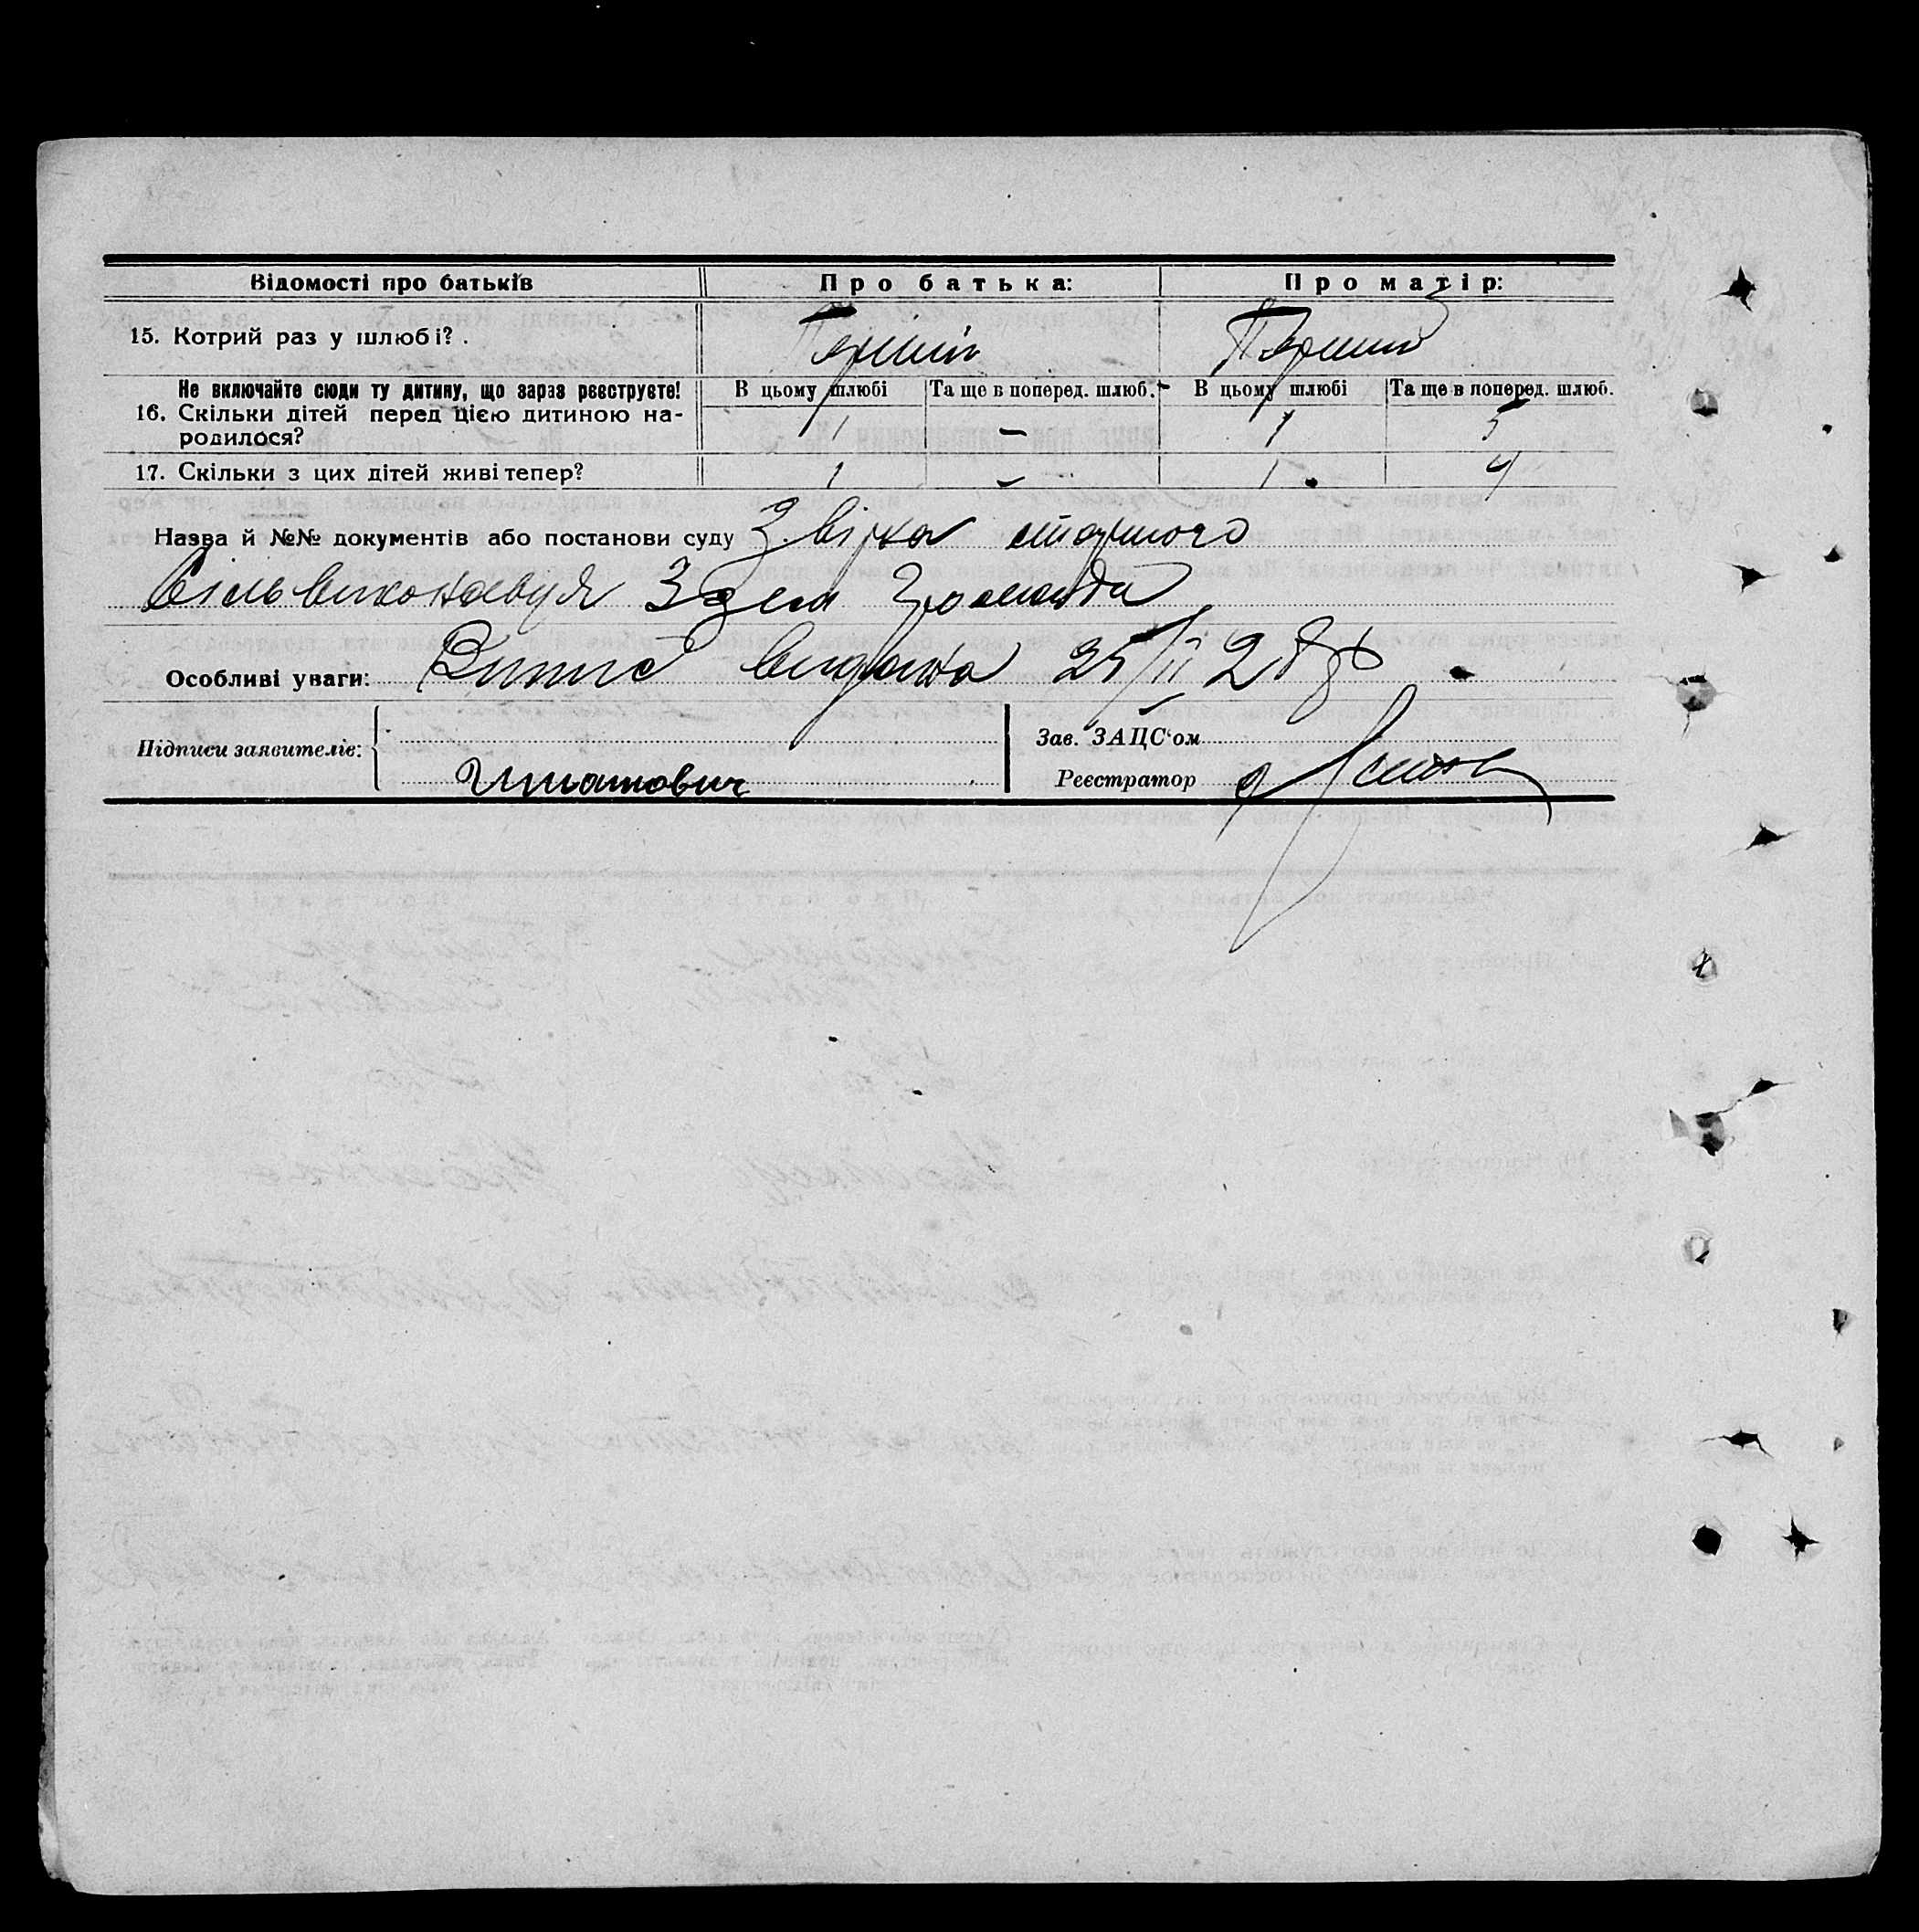 Відомості про батьків Про батька: Про матір:
15. Котрий раз у шлюбі? . Перший Перший
Не включайте сюди ту дитину, що зараз реєструєте! В цьому шлюбі Та ще в поперед. шлюб. В цьому шлюбі Та ще в поперед. шлюб.
16. Скільки дітей перед цією дитиною на-
родилося? 1 – 1 5
17. Скільки з цих дітей живі тепер? 1 – 1 4
Назва й №№ документів або постанови суду Звірка старшого
сільвиконавця Зем Громади
Особливі уваги: Видана 25/II 28 р
Підписи заявителів: Зав. ЗАЦС'ом
Реєстратор